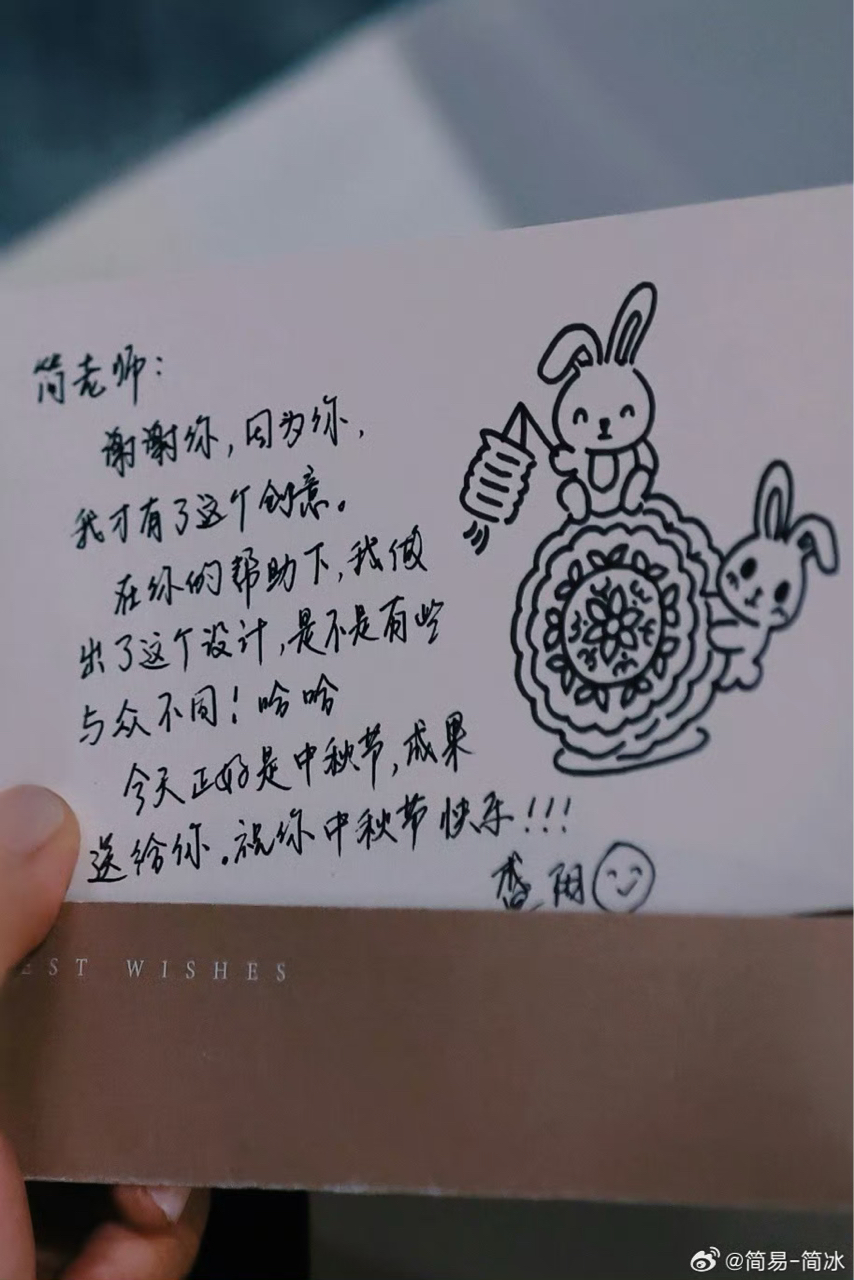 简老师：
谢谢你，因为你，
我才有了这个创意。
在你的帮助下，我做
出了这个设计，是不是有些
与众不同！哈哈
今天正好是中秋节，成果
送给你。祝你中秋节快乐！！！
盛阳
EST WISHES
@简易-简冰